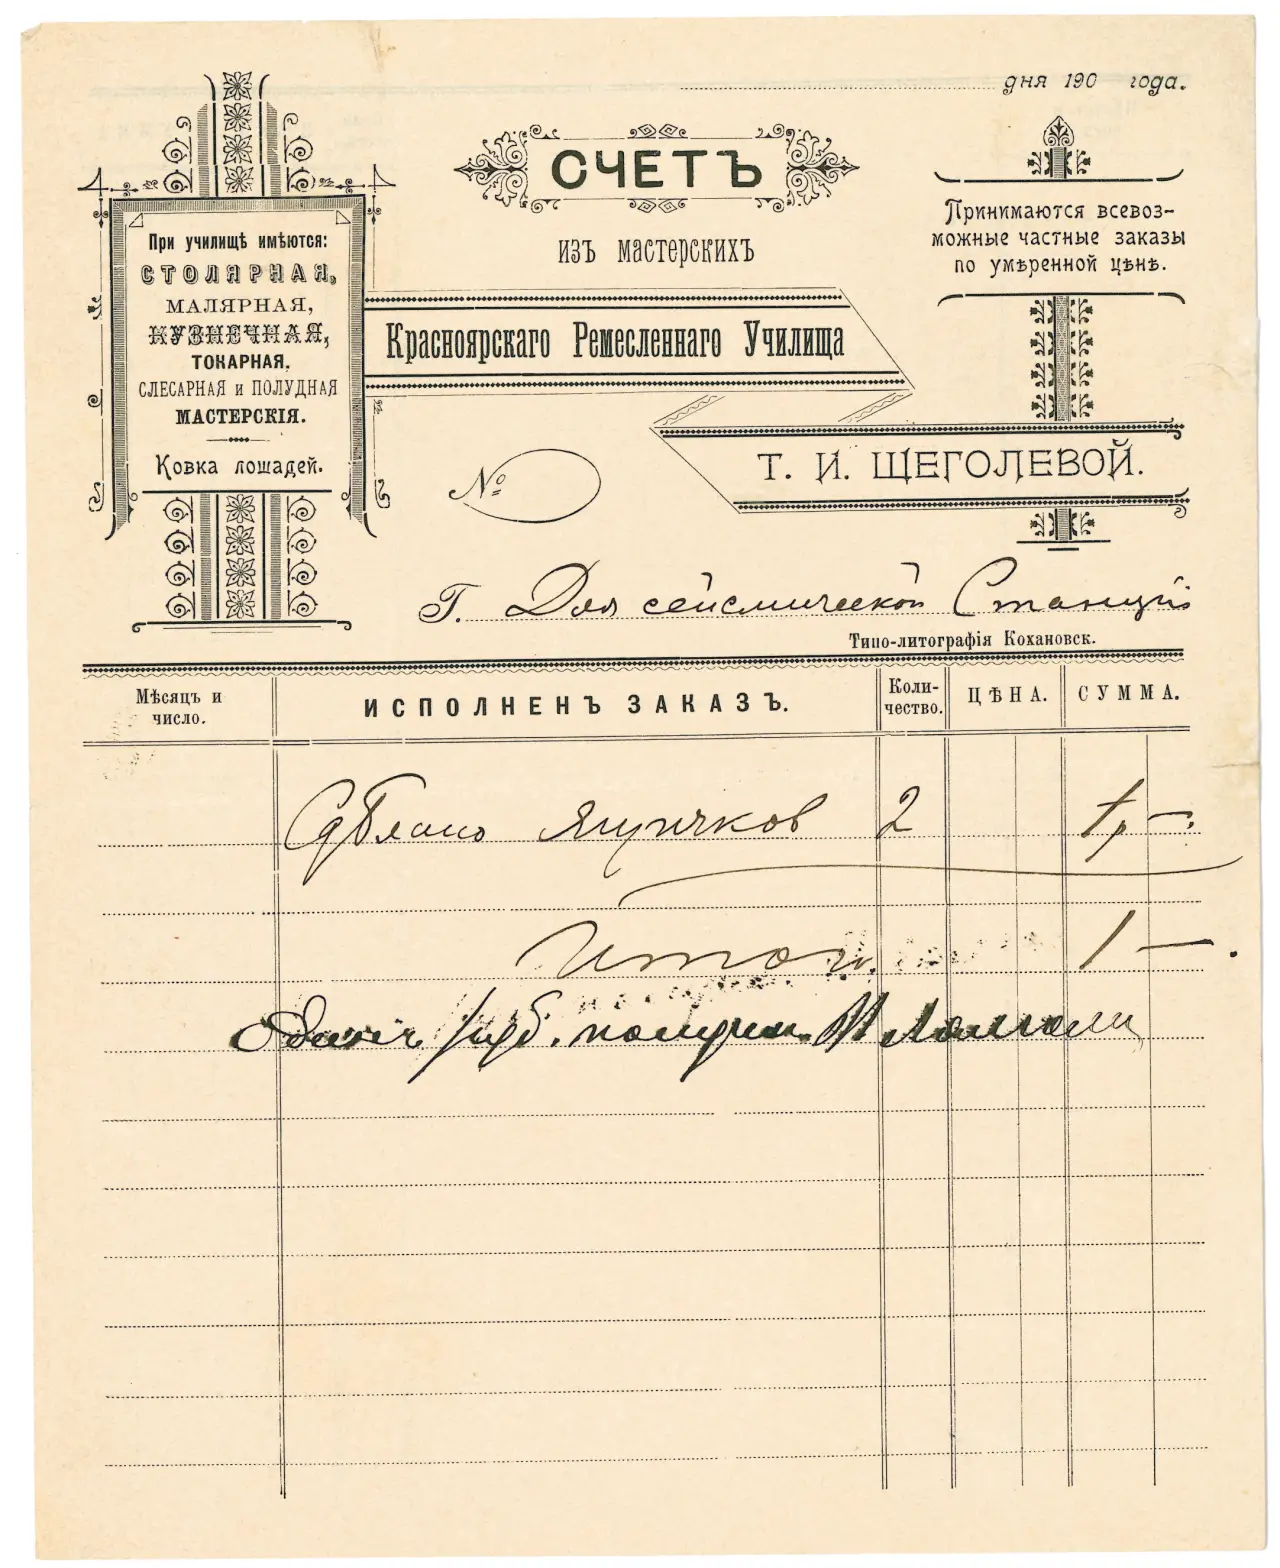 дня 190 года.
СЧЕТЪ
изъ мастерскихъ
Красноярскаго Ремесленнаго Училища
Т. И. ЩЕГОЛЕВОЙ.
При училищѣ имѣются:
СТОЛЯРНАЯ,
МАЛЯРНАЯ,
КУЗНЕЧНАЯ,
ТОКАРНАЯ,
СЛЕСАРНАЯ и ПОЛУДНАЯ
МАСТЕРСКІЯ.
Ковка лошадей.
Принимаются всевоз-
можные частные заказы
по умѣренной цѣнѣ.
№
Г. Для сейсмической Станціи
Типо-литографія Кохановск.
Мѣсяцъ и
число.
ИСПОЛНЕНЪ ЗАКАЗЪ.
Коли-
чество.
ЦѢНА.
СУММА.
Сдѣлано ящичков 2 1р —.
Итого 1 —.
Один руб. получил